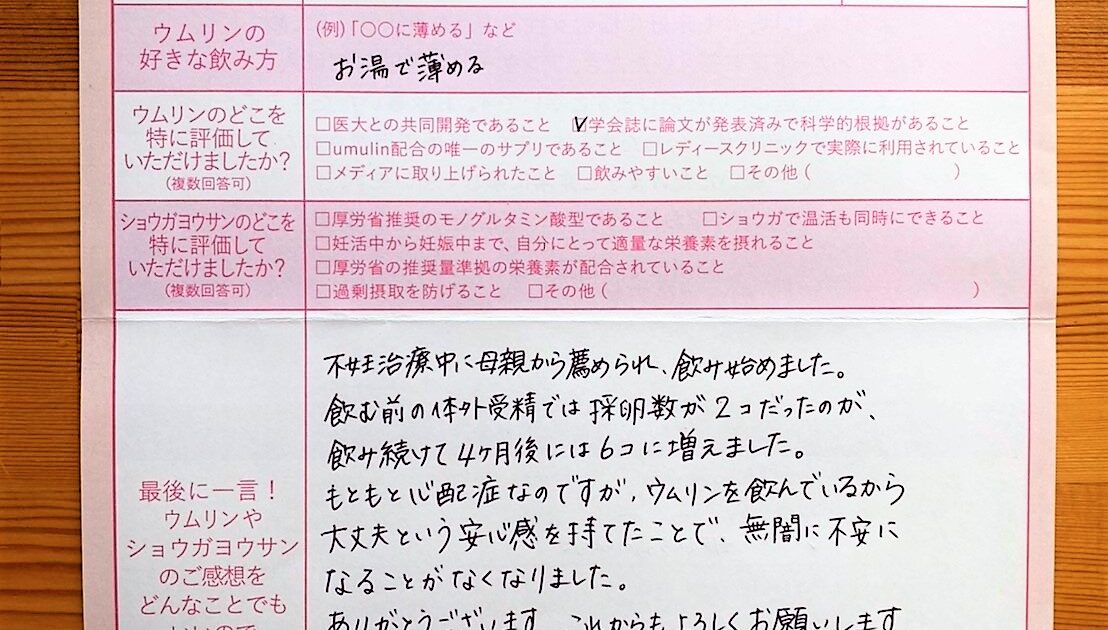 ウムリンの
好きな飲み方
(例)「〇〇に薄める」など
お湯で薄める
ウムリンのどこを
特に評価して
いただけましたか?
(複数回答可)
□医大との共同開発であること ☑学会誌に論文が発表済みで科学的根拠があること
□umulin配合の唯一のサプリであること □レディースクリニックで実際に利用されていること
□メディアに取り上げられたこと □飲みやすいこと □その他( )
ショウガヨウサンのどこを
特に評価して
いただけましたか?
(複数回答可)
□厚労省推奨のモノグルタミン酸型であること □ショウガで温活も同時にできること
□妊活中から妊娠中まで、自分にとって適量な栄養素を摂れること
□厚労省の推奨量準拠の栄養素が配合されていること
□過剰摂取を防げること □その他( )
最後に一言!
ウムリンや
ショウガヨウサン
のご感想を
どんなことでも
いいので
不妊治療中に母親から薦められ、飲み始めました。
飲む前の体外受精では採卵数が2コだったのが、
飲み続けて4ヶ月後には6コに増えました。
もともと心配症なのですが、ウムリンを飲んでいるから
大丈夫という安心感を持てたことで、無闇に不安に
なることがなくなりました。
ありがとうございます。これからもよろしくお願いします